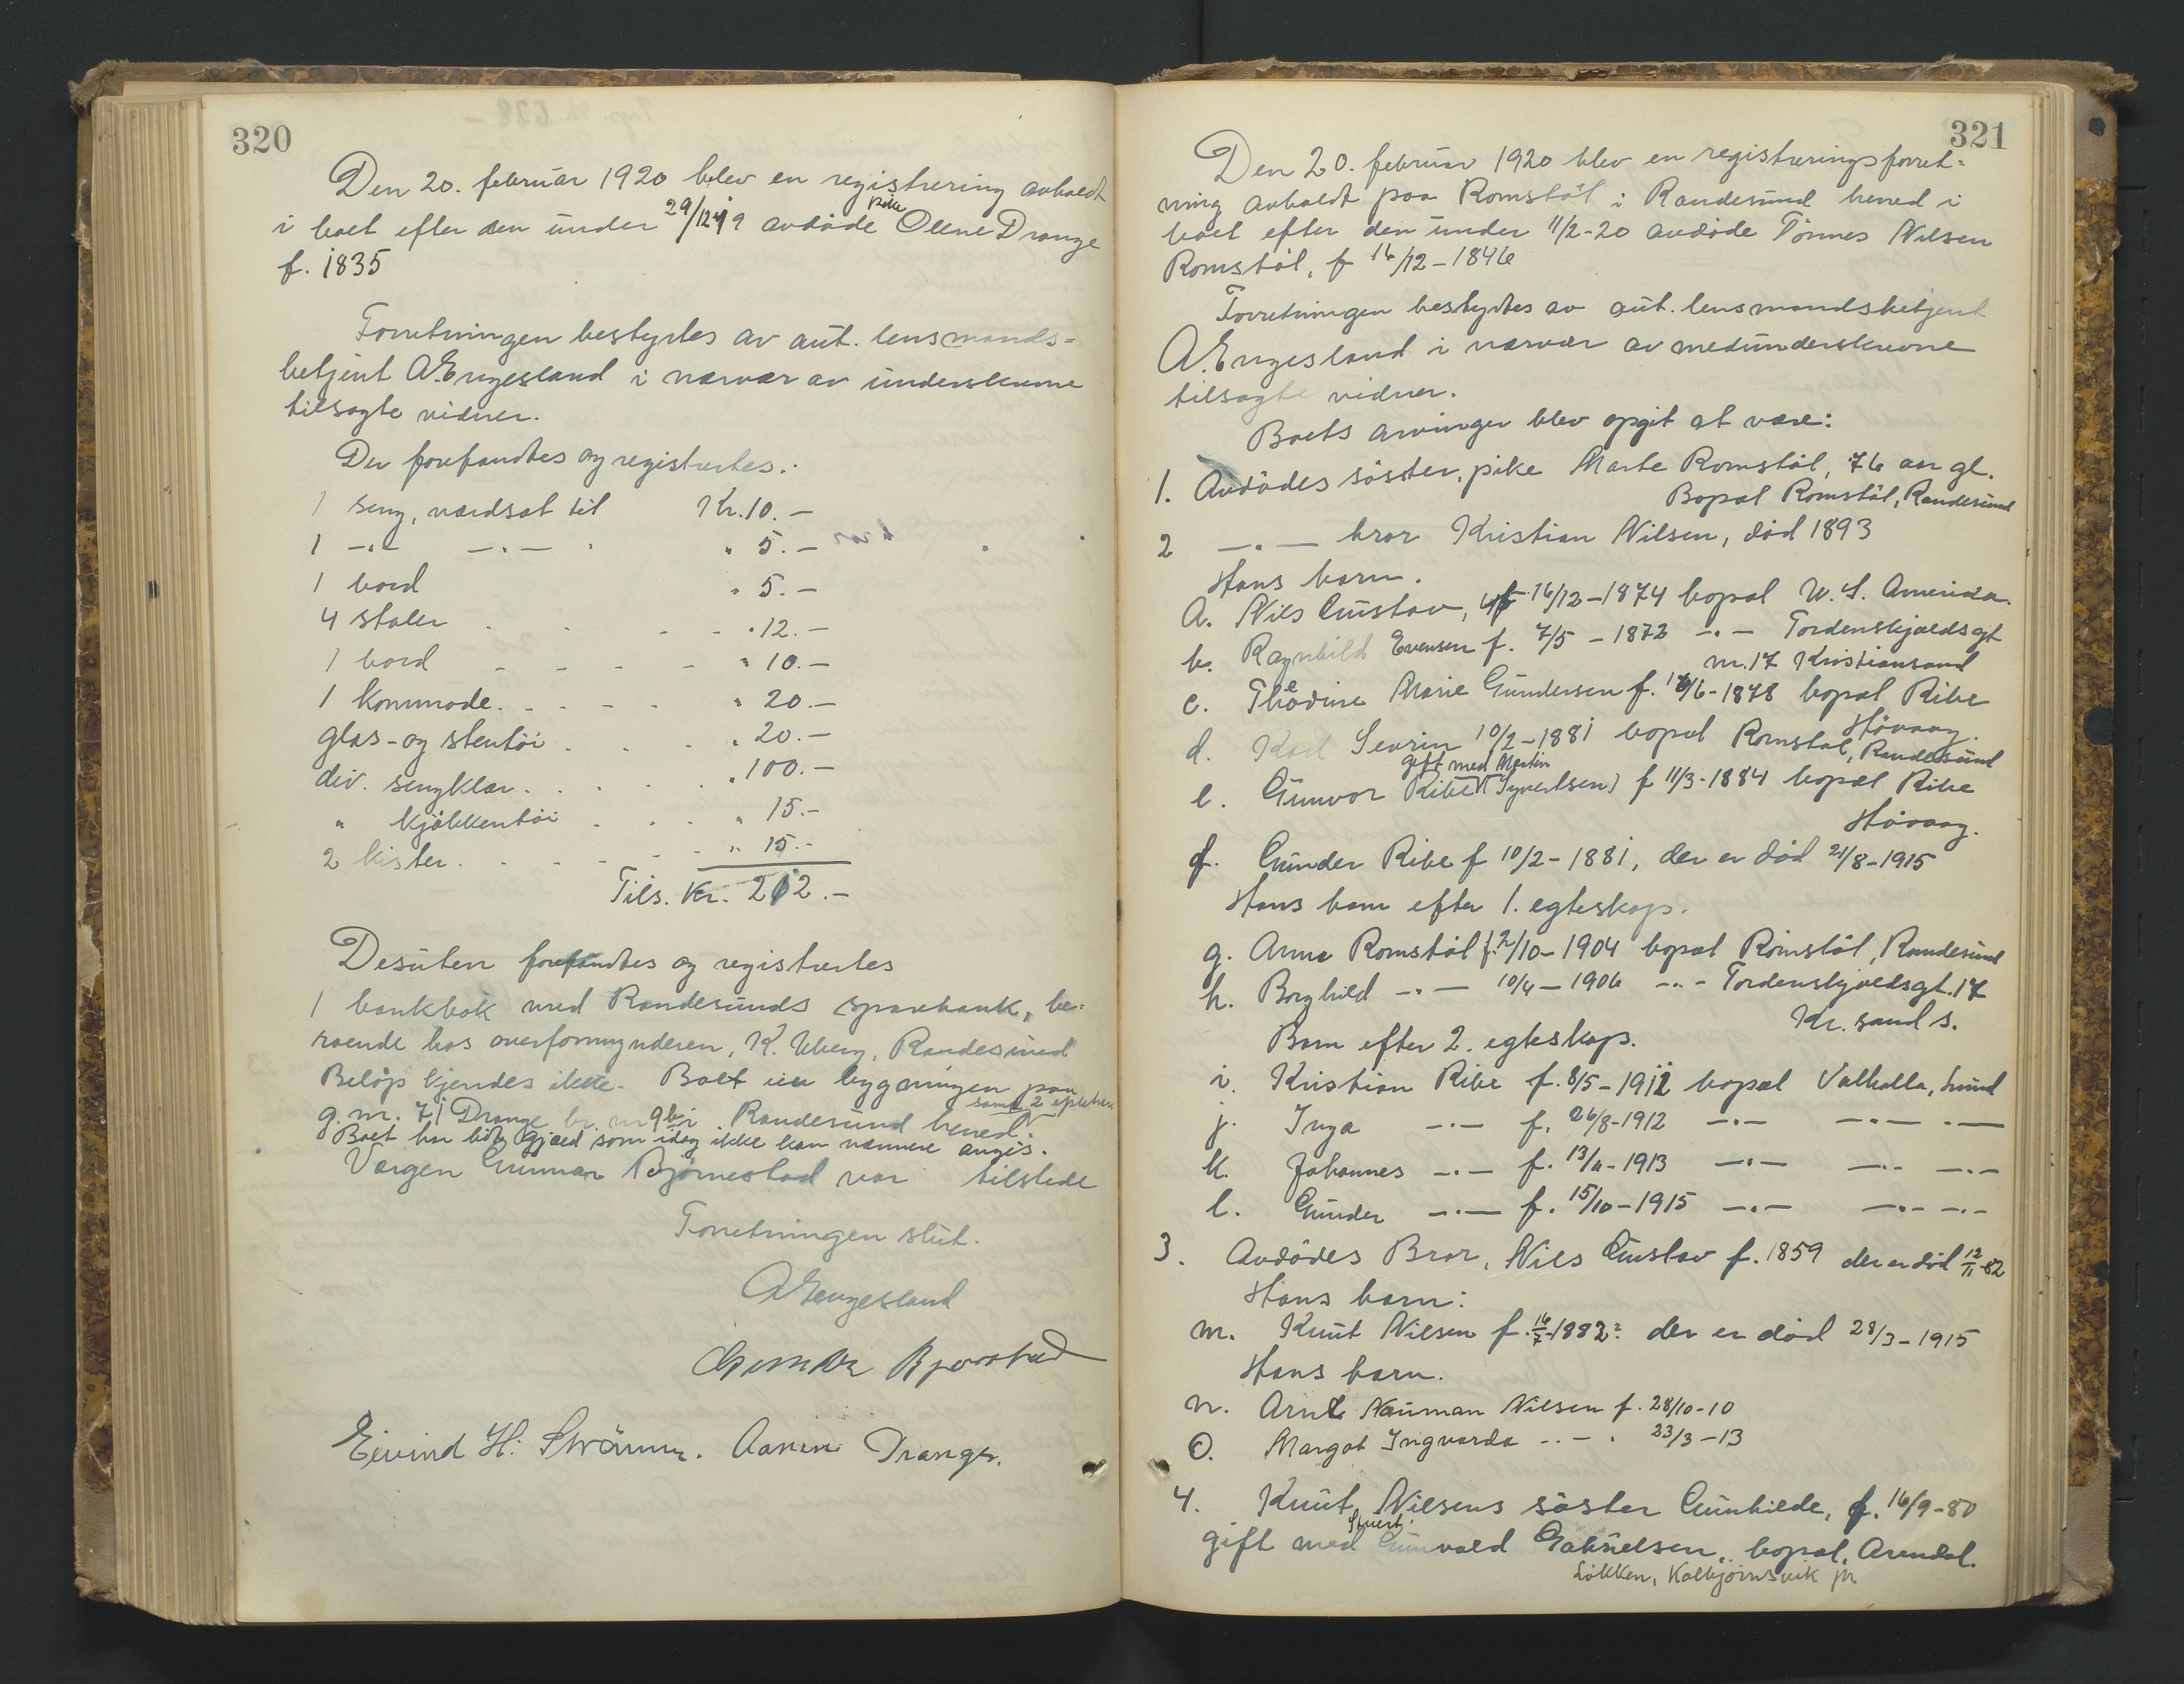 320
Den 20. februar 1920 blev en registrering avholdt
i boet efter den under 29/12 19 avdöde pike Olene Drange
f. 1835
Forretningen bestyrtes av aut. lensmands=
betjent A. Engesland i nærvær av underskrevne
tilsagte vidner.
Der forefandtes og registrertes.:
1 seng, værdsat til Kr. 10.—
1 —"— —"— " 5.—
1 bord " 5.—
4 stoler " 12.—
1 bord " 10.—
1 kommode " 20.—
glas- og stentöi " 20.—
div. sengklær " 100.—
" kjökkentöi " 15.—
2 kister " 15.—
Tils. Kr. 212.—
Desuten forefandtes og registrertes
1 bankbok med Randesunds sparebank, be=
roende hos overformynderen, K. Uberg, Randesund
Belöp kjendes ikke. Boet eier bygningen paa
g. nr. 71 Drange br. nr 9 b i Randesund herred samt 2
Boet har litt gjæld som idag ikke kan nærmere angis.
Værgen Gunnar Bjørnestad var tilstede
Forretningen slut.
A Engesland
Gunnar Bjørnstad
Eivind H. Strömme. Aanen Drange.
321
Den 20. februar 1920 blev en registreringsforret=
ning avholdt paa Romstöl i Randesund herred i
boet efter den under 11/2-20 avdöde Tönnes Nilsen
Romstöl, f 16/12-1846
Forretningen bestyrtes av aut. lensmandsbetjent
A. Engesland i nærvær av medunderskrevne
tilsagte vidner.
Boets arvinger blev opgit at være:
1. Avdödes söster, pike Marte Romstöl, 76 aar gl.
Bopæl Romstöl, Randesund
2 —"— bror Kristian Nilsen, död 1893
Hans barn.
a. Nils Gustav, f. 16/12-1874 bopæl U. S. Amerika.
b. Ragnhild Evensen f. 7/5-1872 —"— Tordenskjoldsgt
nr. 17 Kristiansand
c. Theodine Marie Gundersen f. /6-1878 bopæl Ribe
Høvaag.
d. Karl Severin 10/2-1881 bopæl Romstøl, Randesund
e. Gunvor Ribe (gift med Martin Syvertsen) f 11/3-1884 bopæl Ribe
Høvaag.
f. Gunder Ribe f 10/2-1881, der er död 21/8-1915
Hans barn efter 1. egteskap.
g. Anna Romstöl f. 2/10-1904 bopæl Romstöl, Randesund
h. Borghild —"— 10/4-1906 —"— Tordenskjoldsgt. 17
Kr. sand s.
Barn efter 2. egteskap.
i. Kristian Ribe f. 8/5-1911 bopæl Valhalla, Lund
j. Inga —"— f. 26/8-1912 —"— —"— —"—
k. Johannes —"— f. 13/11-1913 —"— —"— —"—
l. Gunder —"— f. 15/10-1915 —"— —"— —"—
3. Avdödes Bror, Nils Gustav f. 1859 der er död 12/11-82
Hans barn:
m. Knut Nilsen f. 16/7-1882? der er död 28/3-1915
Hans barn.
n. Arne Nauman Nilsen f. 28/10-10
o. Margot Ingvarda —"— 23/3-13
4. Knut Nilsens söster Gunhilde, f. 16/9-80
gift med Gunvald Gabrielsen, bopæl, Arendal.
Løkken, Kolbjørnsvik pr